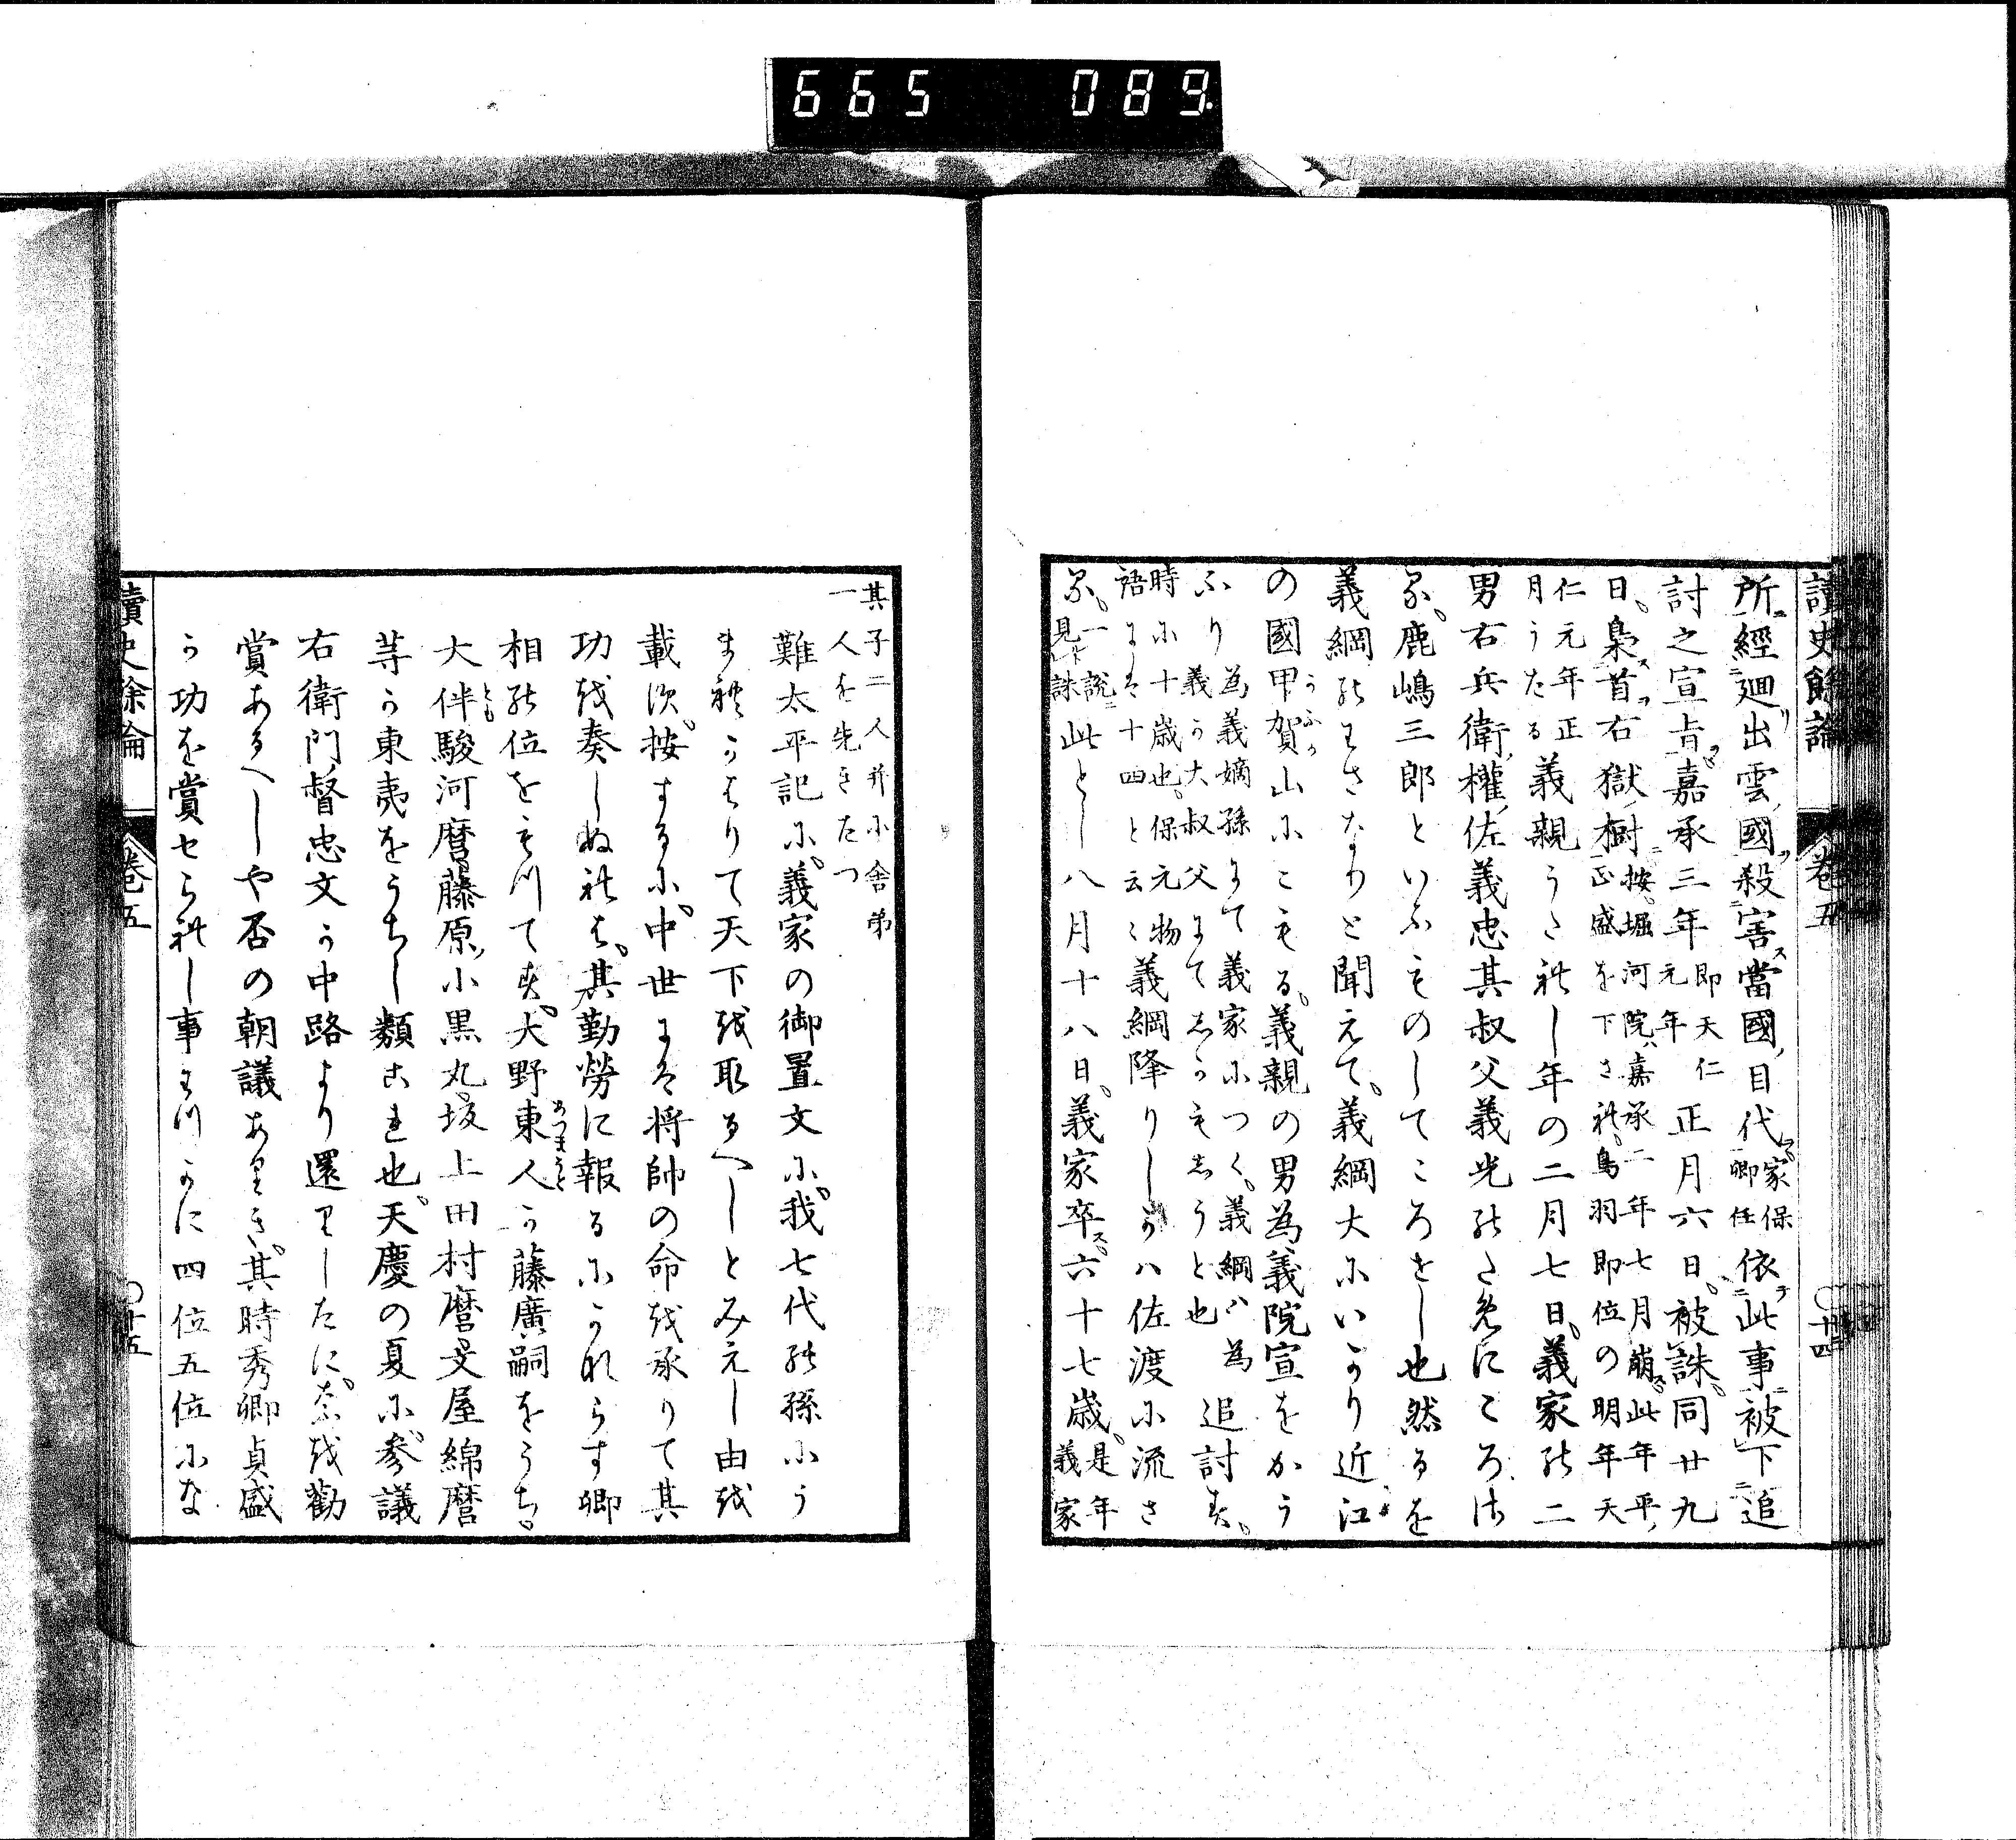 665 089
讀史餘論 卷五 〇十四
所經廻出雲國殺害當國目代家保卿任依此事被下追
討之宣旨嘉承三年即天仁元年正月六日被誅同廿九
日梟首右獄樹按堀河院ハ嘉承二年七月崩此年平正盛を下さ礼鳥羽即位の明年天
仁元年正月うたる義親うた礼し年の二月七日義家能二
男右兵衛權佐義忠其叔父義光能ために
鹿嶋三郎といふものしてころをし也然るを
義綱能わさなりと聞えて義綱大にいかり近江
の國甲賀山にこもる義親の男為義院宣をかう
ふり為義嫡孫にて義家につく義綱ハ為義か大叔父にてしかもしうと也追討す
時に十歳也保元物語には十四と云々義綱降りしかハ佐渡に流さ
る一説見誅此とし八月十八日義家卒六十七歳是年義家
其子二人并に舎弟一人を先きたつ
難太平記に義家の御置文に我七代能孫にう
まれかはりて天下を取るへしとみえし由を
載す按するに中世には将帥の命を承りて其
功を奏しぬれは其勤勞に報るにかならす卿
相能位をもつてす大野東人か藤廣嗣をうち
大伴駿河麿藤原小黒丸坂上田村麿文屋綿麿
等か東夷をうちし類これ也天慶の夏に參議
右衛門督忠文か中路より還りしたに是を勸
賞あるへしや否の朝議ありき其時秀卿貞盛
か功を賞せられし事わつかに四位五位にな
讀史餘論 卷五 〇十五